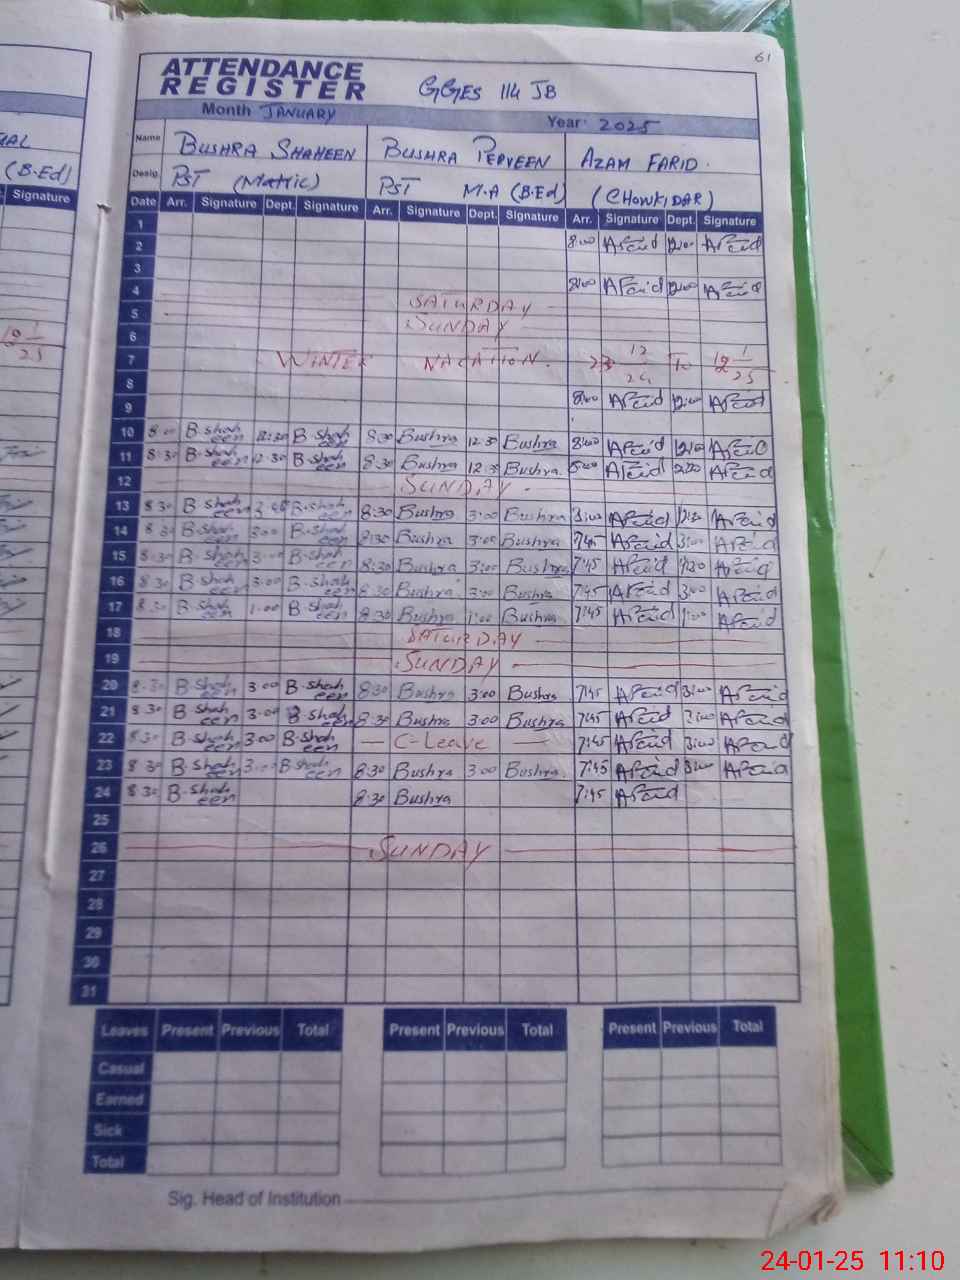 61
ATTENDANCE
REGISTER GGES 114 JB
Month JANUARY Year: 2025
Name BUSHRA SHAHEEN BUSHRA PERVEEN AZAM FARID.
(B.Ed) Desig. PST (Matric) PST M.A (B.Ed) (CHOWKIDAR)
Signature Date Arr. Signature Dept. Signature Arr. Signature Dept. Signature Arr. Signature Dept. Signature
1
2 8:00 AFarid 12:00 AFarid
3
4 8:00 AFarid 12:00 AFarid
SATURDAY
5 SUNDAY
6
7 WINTER VACATION. 12/24 To 1/25
8
9 8:00 AFarid 12:00 AFarid
10 8:30 B-shaheen 12:30 B-shaheen 8:30 Bushra 12:30 Bushra 8:00 AFarid 12:00 AFarid
11 8:30 B-shaheen 12:30 B-shaheen 8:30 Bushra 12:30 Bushra. AFarid AFarid
12 SUNDAY
13 8:30 B-shaheen B-shaheen 8:30 Bushra 3:00 Bushra AFarid AFarid
14 8:30 B-shaheen 3:00 B-shaheen 8:30 Bushra 3:00 Bushra 7:45 AFarid 3:00 AFarid
15 8:30 B-shaheen 3:00 B-shaheen 8:30 Bushra 3:00 Bushra 7:45 AFarid AFarid
16 8:30 B-shaheen 3:00 B-shaheen 8:30 Bushra 3:00 Bushra 7:45 AFarid 3:00 AFarid
17 8:30 B-shaheen 1:00 B-shaheen 8:30 Bushra 1:00 Bushra 7:45 AFarid 1:00 AFarid
18 SATURDAY
19 SUNDAY
20 8:30 B-shaheen 3:00 B-shaheen 8:30 Bushra 3:00 Bushra 7:45 AFarid 3:00 AFarid
21 8:30 B-shaheen 3:00 B-shaheen 8:30 Bushra 3:00 Bushra 7:45 AFarid 3:00 AFarid
22 8:30 B-shaheen 3:00 B-shaheen — C-Leave — 7:45 AFarid 3:00 AFarid
23 8:30 B-shaheen 3:00 B-shaheen 8:30 Bushra 3:00 Bushra. 7:45 AFarid 3:00 AFarid
24 8:30 B-shaheen 8:30 Bushra 7:45 AFarid
25
26 SUNDAY
27
28
29
30
31
Leaves Present Previous Total Present Previous Total Present Previous Total
Casual
Earned
Sick
Total
Sig. Head of Institution
24-01-25 11:10